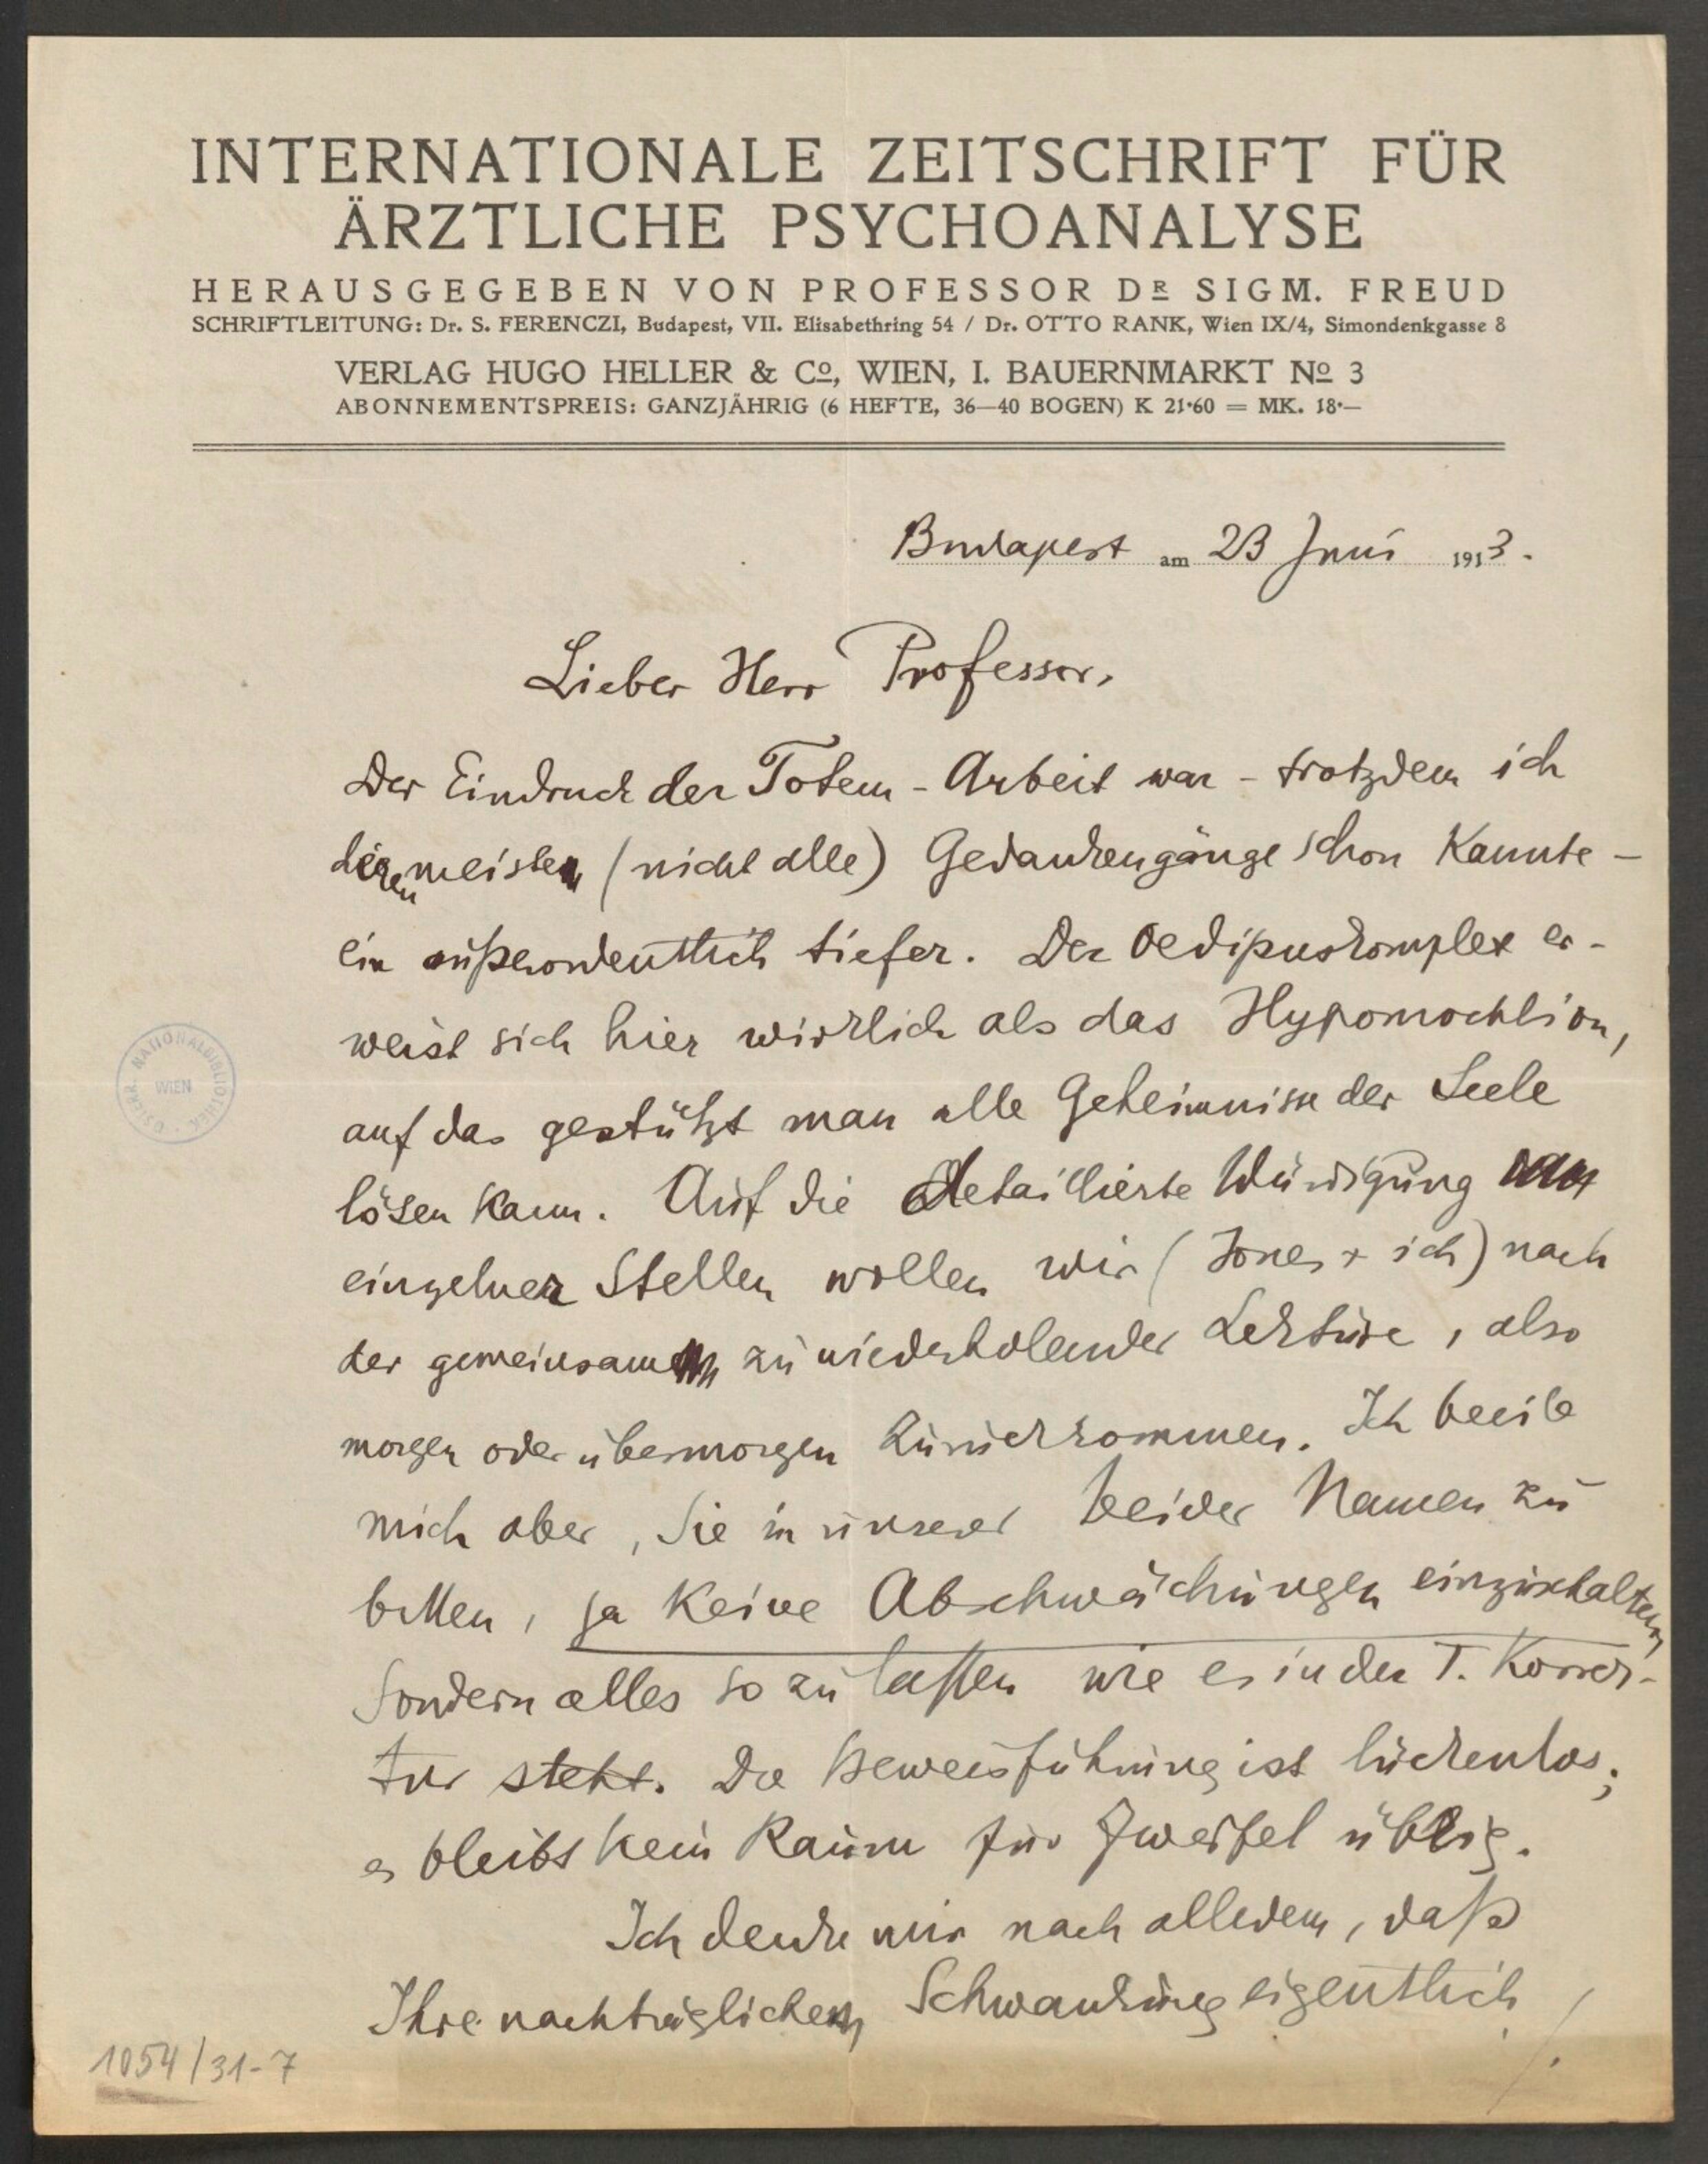 INTERNATIONALE ZEITSCHRIFT FÜR
ÄRZTLICHE PSYCHOANALYSE
HERAUSGEGEBEN VON PROFESSOR DR SIGM. FREUD
SCHRIFTLEITUNG: Dr. S. FERENCZI, Budapest, VII. Elisabethring 54 / Dr. OTTO RANK, Wien IX/4, Simondenkgasse 8
VERLAG HUGO HELLER & Co, WIEN, I. BAUERNMARKT No 3
ABONNEMENTSPREIS: GANZJÄHRIG (6 HEFTE, 36—40 BOGEN) K 21·60 = MK. 18·—
Budapest am 23 Juni 1913.
Lieber Herr Professor,
Der Eindruck der Totem-Arbeit war – trotzdem ich
meisten (nicht alle) Gedankengänge schon kannte –
ein außerordentlich tiefer. Der Oedipuskomplex er-
weist sich hier wirklich als das Hypomochlion,
auf das gestützt man alle Geheimnisse der Seele
lösen kann. Auf die detaillierte Würdigung
einzelner Stellen wollen wir (Jones + ich) nach
der gemeinsam zu wiederholender Lektüre, also
morgen oder übermorgen zurückkommen. Ich beeile
mich aber, Sie in unserer beider Namen zu
bitten, ja keine Abschwächungen einzuschalten,
sondern alles so zu lassen wie es in der I. Korrek-
tur steht. Die Beweisführung ist lückenlos;
es bleibt kein Raum für Zweifel übrig.
Ich denke mir nach alledem, daß
Ihre nachträgliche Schwankung eigentlich
ÖSTERR. NATIONALBIBLIOTHEK · WIEN
1054/31-7